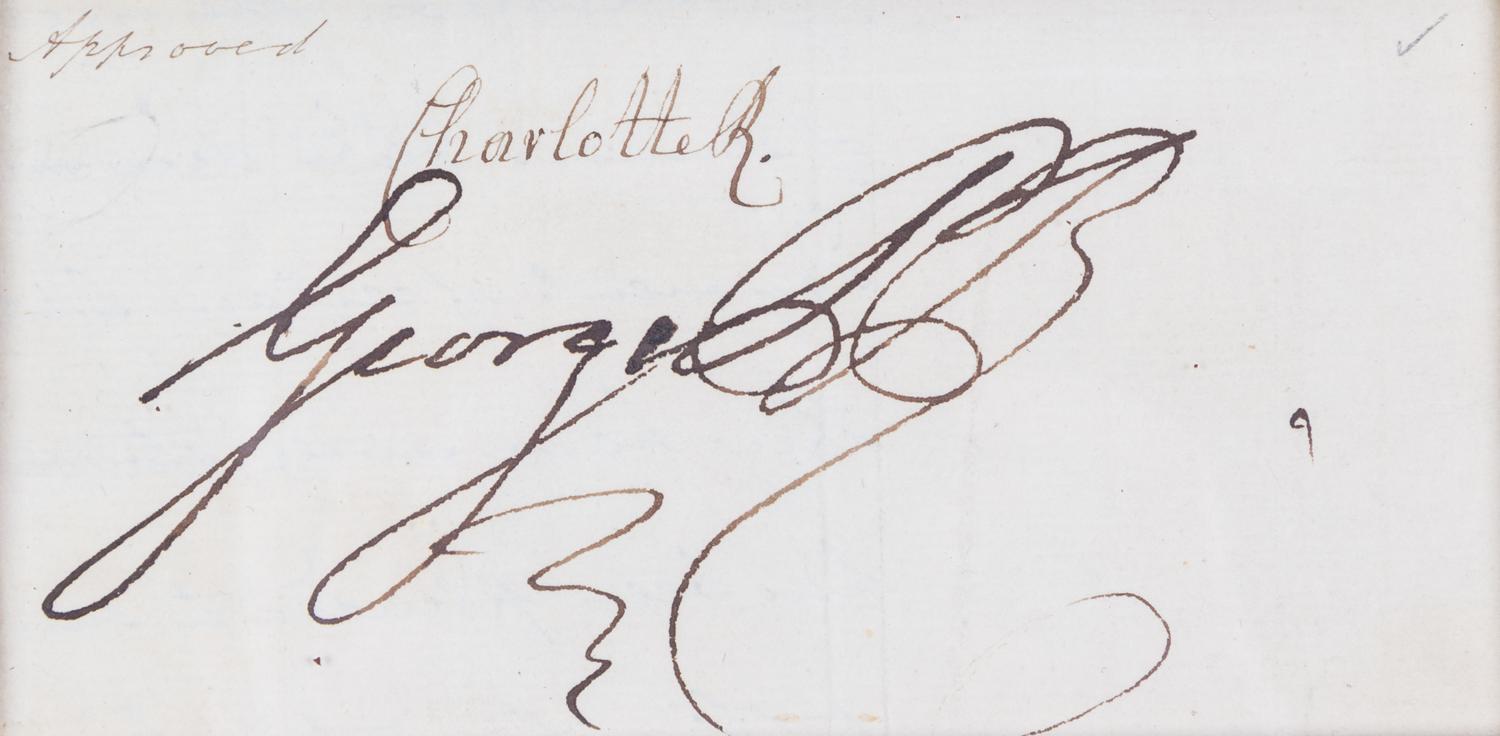 Approved
Charlotte R.
George PR